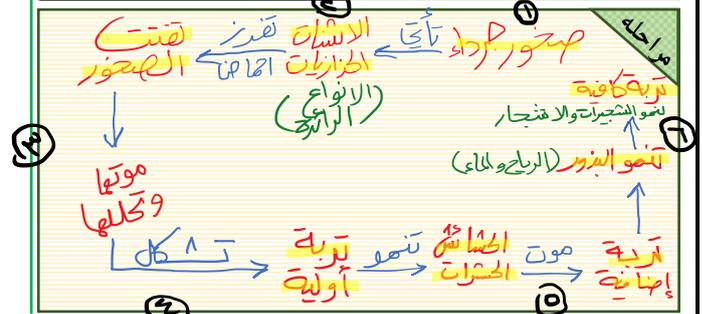 مراحله
١
صخور جرداء
تأتي
٢
الاشنات
الحزازيات
(الانواع
الرائدة)
تفرز
احماضا
تفتت
الصخور
٣
موتها
وتحللها
٤
تشكل
تربة
أولية
تنمو
الحشائش
الحشرات
٥
موت
تربة
إضافية
تنمو البذور (الرياح والماء)
٦
تربة كافية
لنمو الشجيرات والاشجار